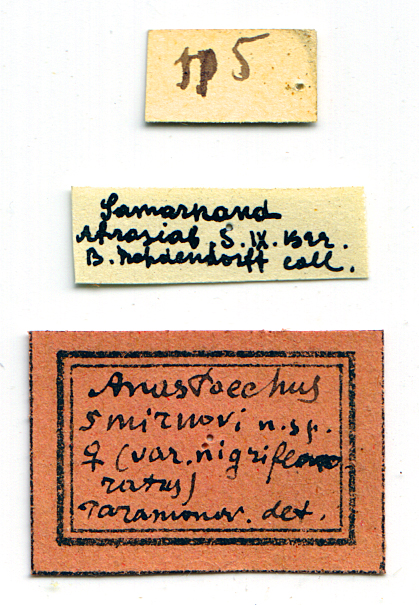 sp 5
Samarkand
Afrasiab, 5. IX. 1922.
B. coll.
Anastoechus
smirnovi n. sp.
♀ (var. nigrifemo
ratus)
Paramonov. det.